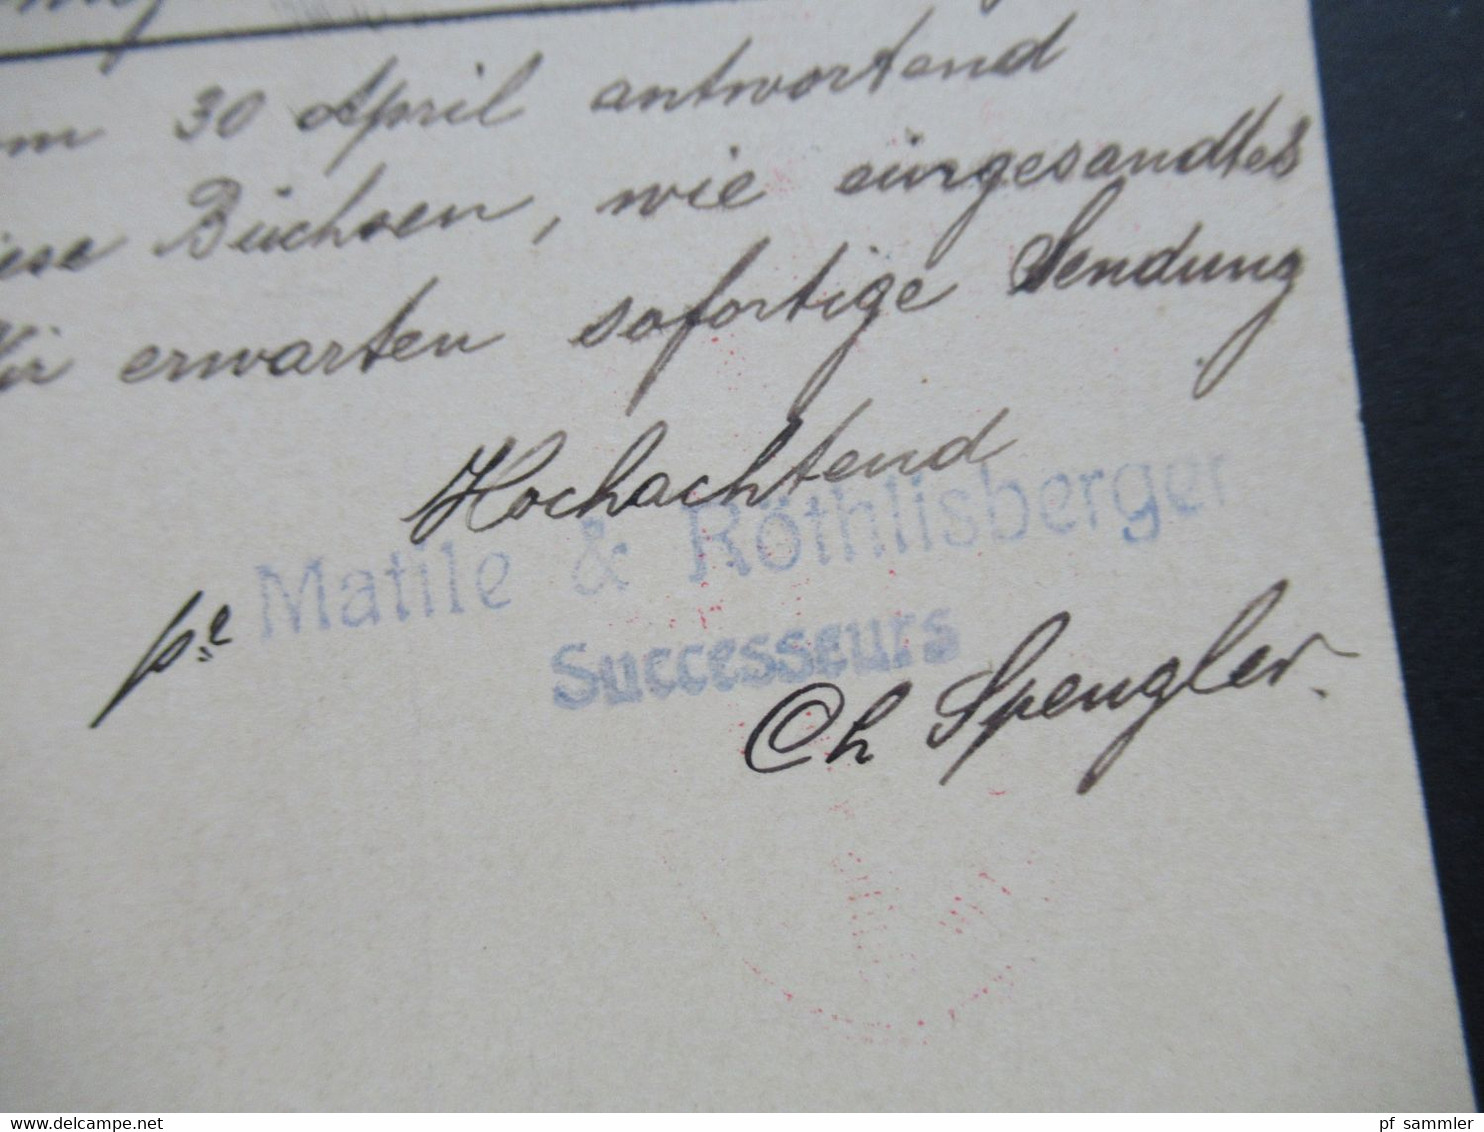 30 April antwortend
Büchsen, wie eingesandtes
erwarten sofortige Sendung
Hochachtend
pe Matile & Röthlisberger
Successeurs
Ch Spengler.
www.delcampe.net
pf sammler